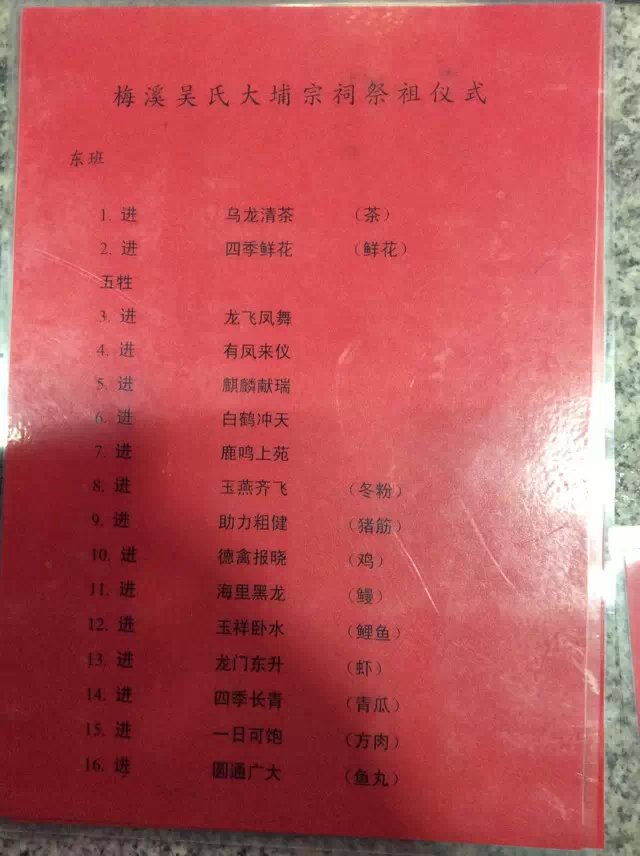 梅溪吴氏大埔宗祠祭祖仪式
东班
1. 进 乌龙清茶 （茶）
2. 进 四季鲜花 （鲜花）
五牲
3. 进 龙飞凤舞
4. 进 有凤来仪
5. 进 麒麟献瑞
6. 进 白鹤冲天
7. 进 鹿鸣上苑
8. 进 玉燕齐飞 （冬粉）
9. 进 助力粗健 （猪筋）
10. 进 德禽报晓 （鸡）
11. 进 海里黑龙 （鳗）
12. 进 玉祥卧水 （鲤鱼）
13. 进 龙门东升 （虾）
14. 进 四季长青 （青瓜）
15. 进 一日可饱 （方肉）
16. 进 圆通广大 （鱼丸）